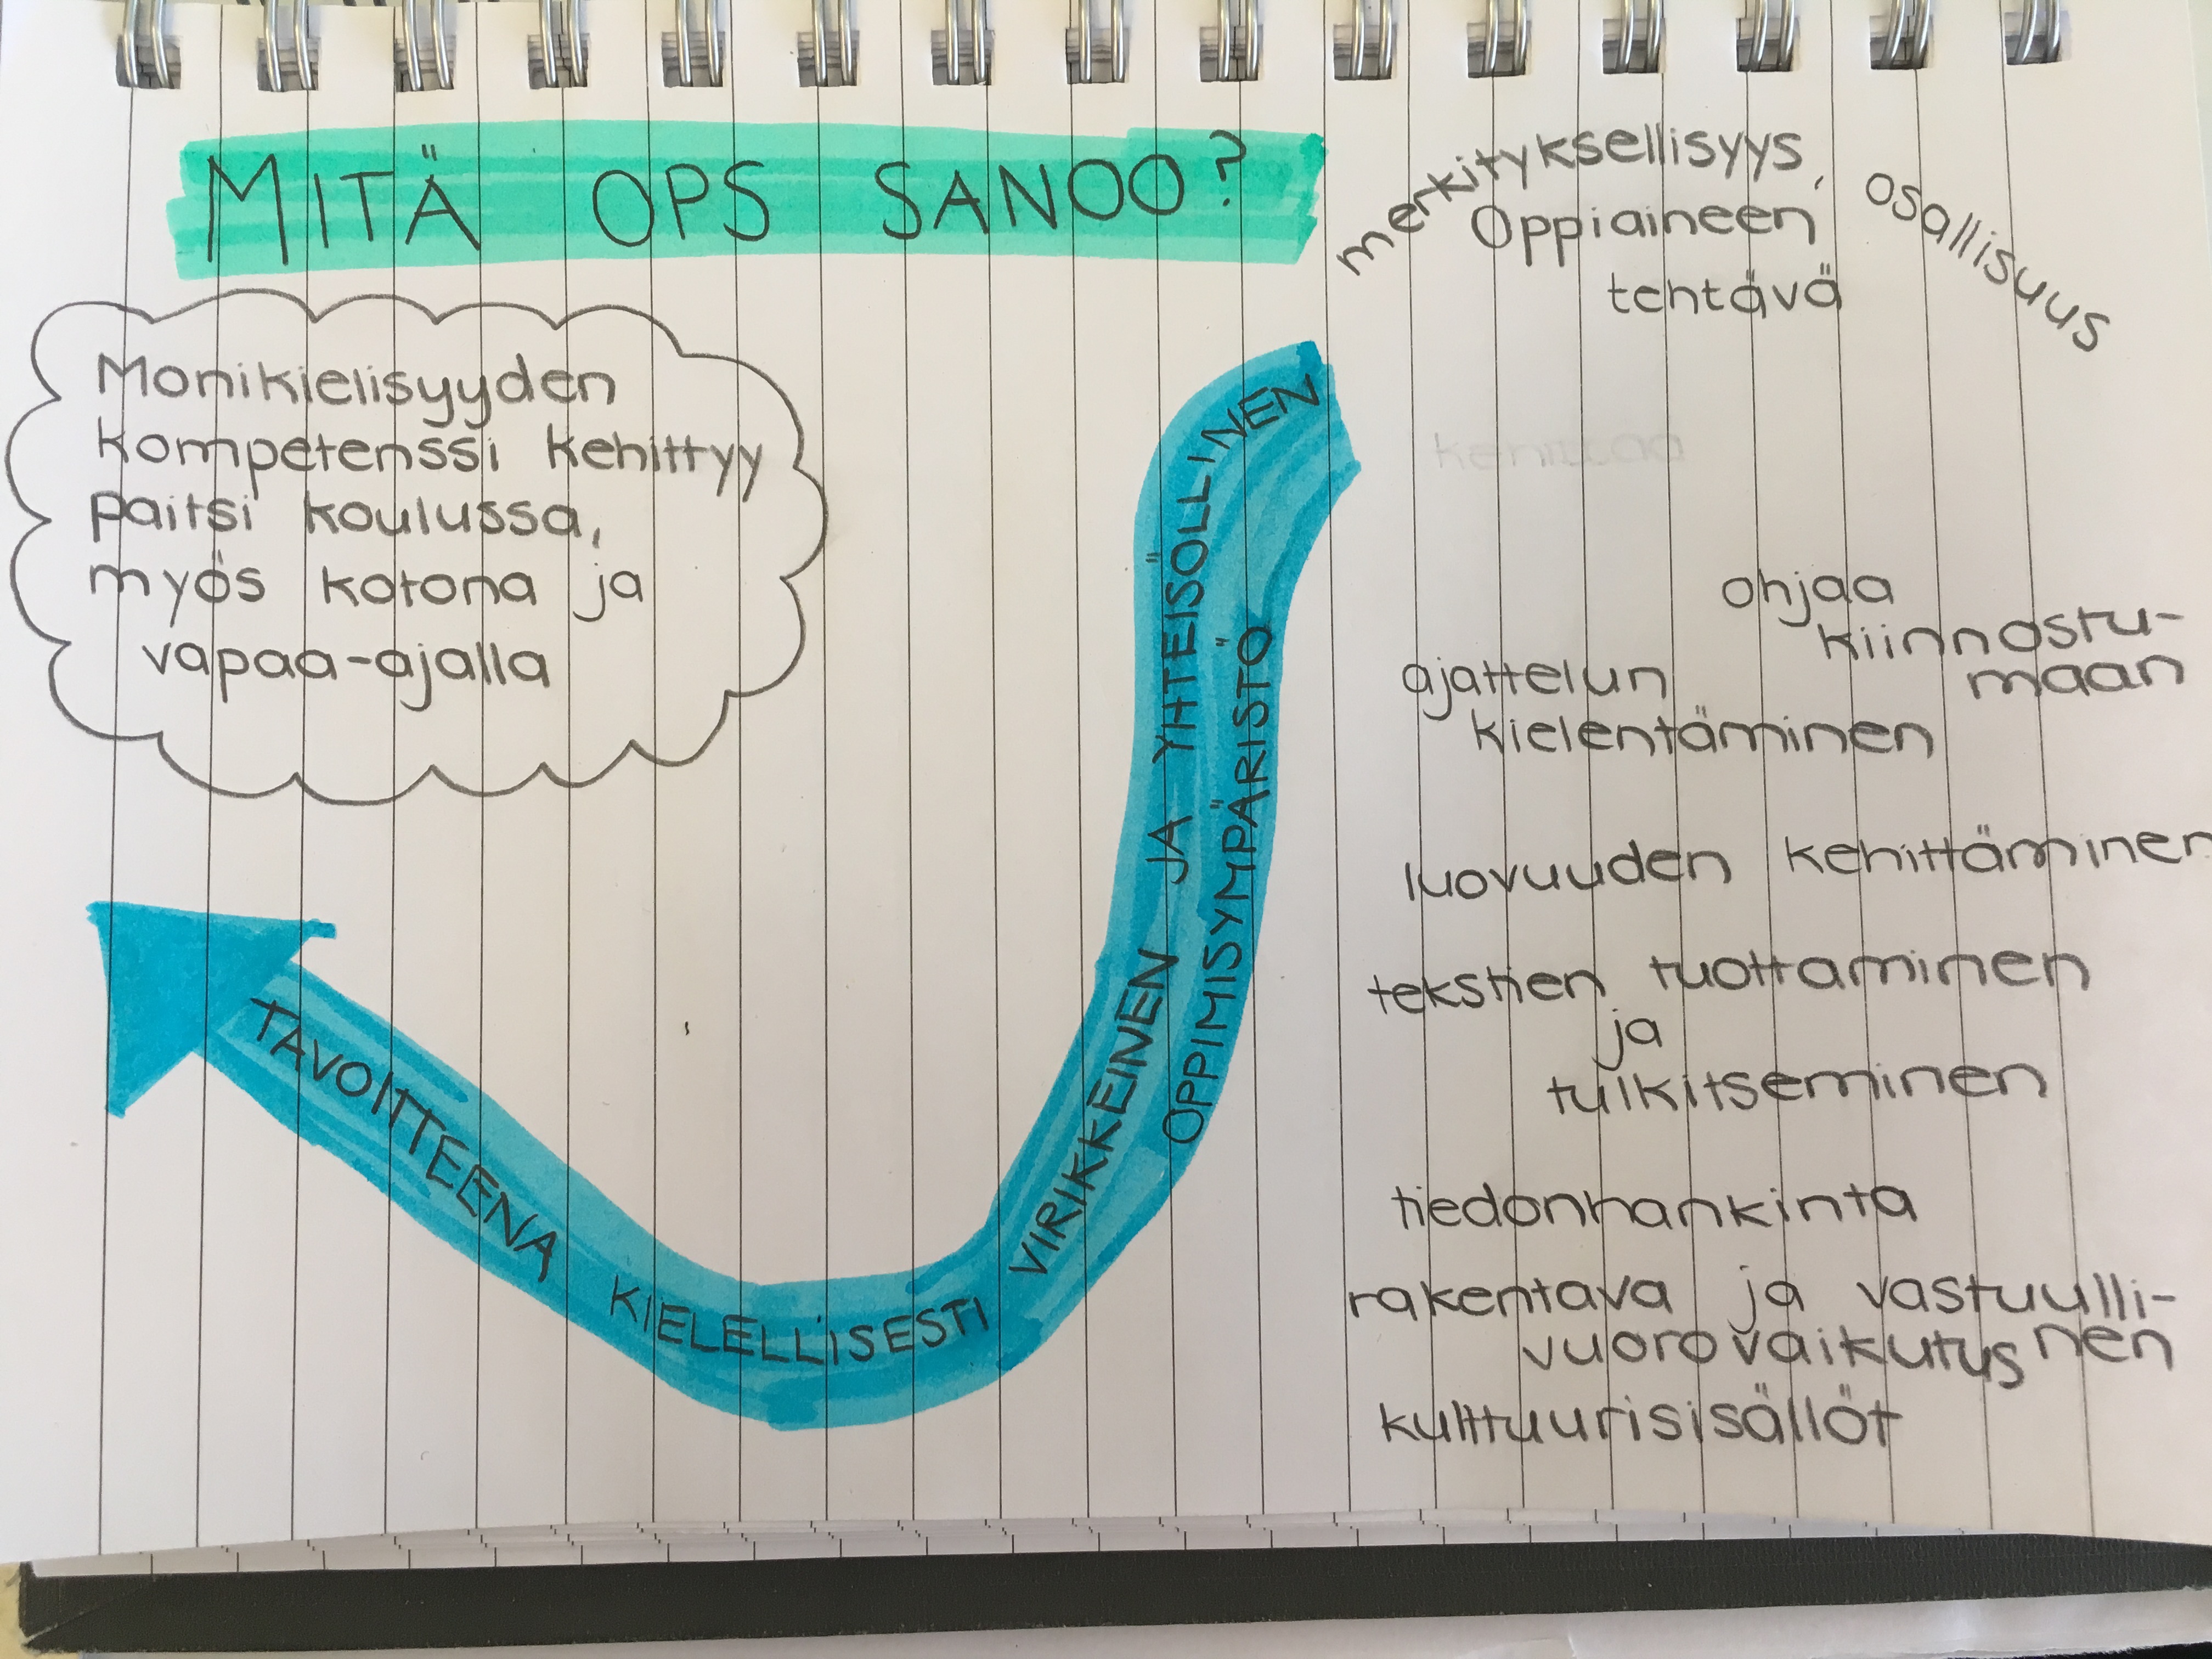 MITÄ OPS SANOO?
Monikielisyyden
kompetenssi kehittyy
paitsi koulussa,
myös kotona ja
vapaa-ajalla
TAVOITTEENA KIELELLISESTI
VIRIKKEINEN JA YHTEISÖLLINEN
OPPIMISYMPÄRISTÖ
merkityksellisyys, osallisuus
Oppiaineen
tehtävä
kehittää
ohjaa
kiinnostu-
maan
ajattelun
kielentäminen
luovuuden kehittäminen
tekstien tuottaminen
ja
tulkitseminen
tiedonhankinta
rakentava ja vastuulli-
vuorovaikutus nen
kulttuurisisällöt